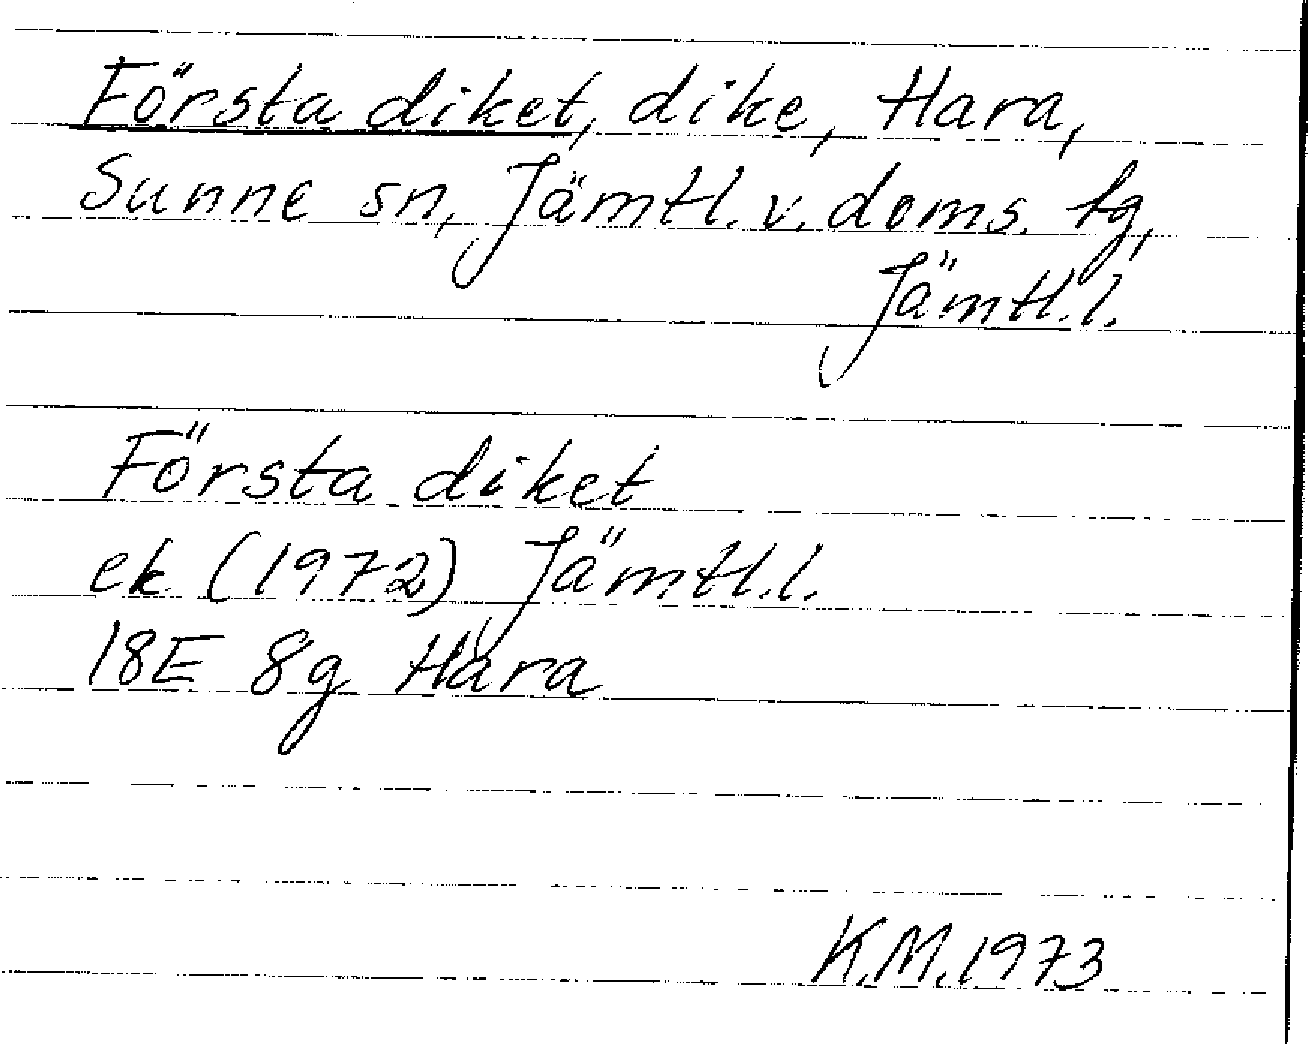 Första diket, dike, Hara,
Sunne sn, Jämtl. v. doms. tg,
Jämtl. l.
Första diket
ek (1972) Jämtl. l.
18E 8g Hara
K.M. 1973